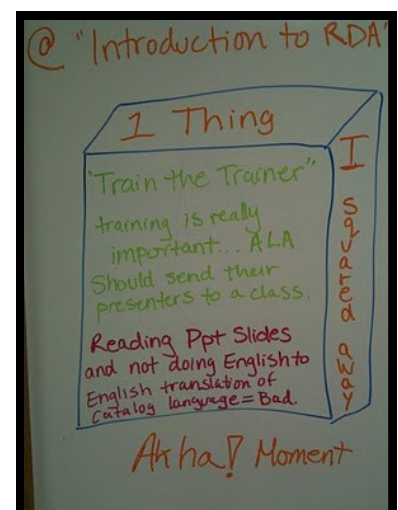 @ "Introduction to RDA"
1 Thing
"Train the Trainer"
training is really
important... ALA
Should send their
presenters to a class.
Reading Ppt Slides
and not doing English to
English translation of
Catalog language = Bad.
I squared away
Ak ha! Moment